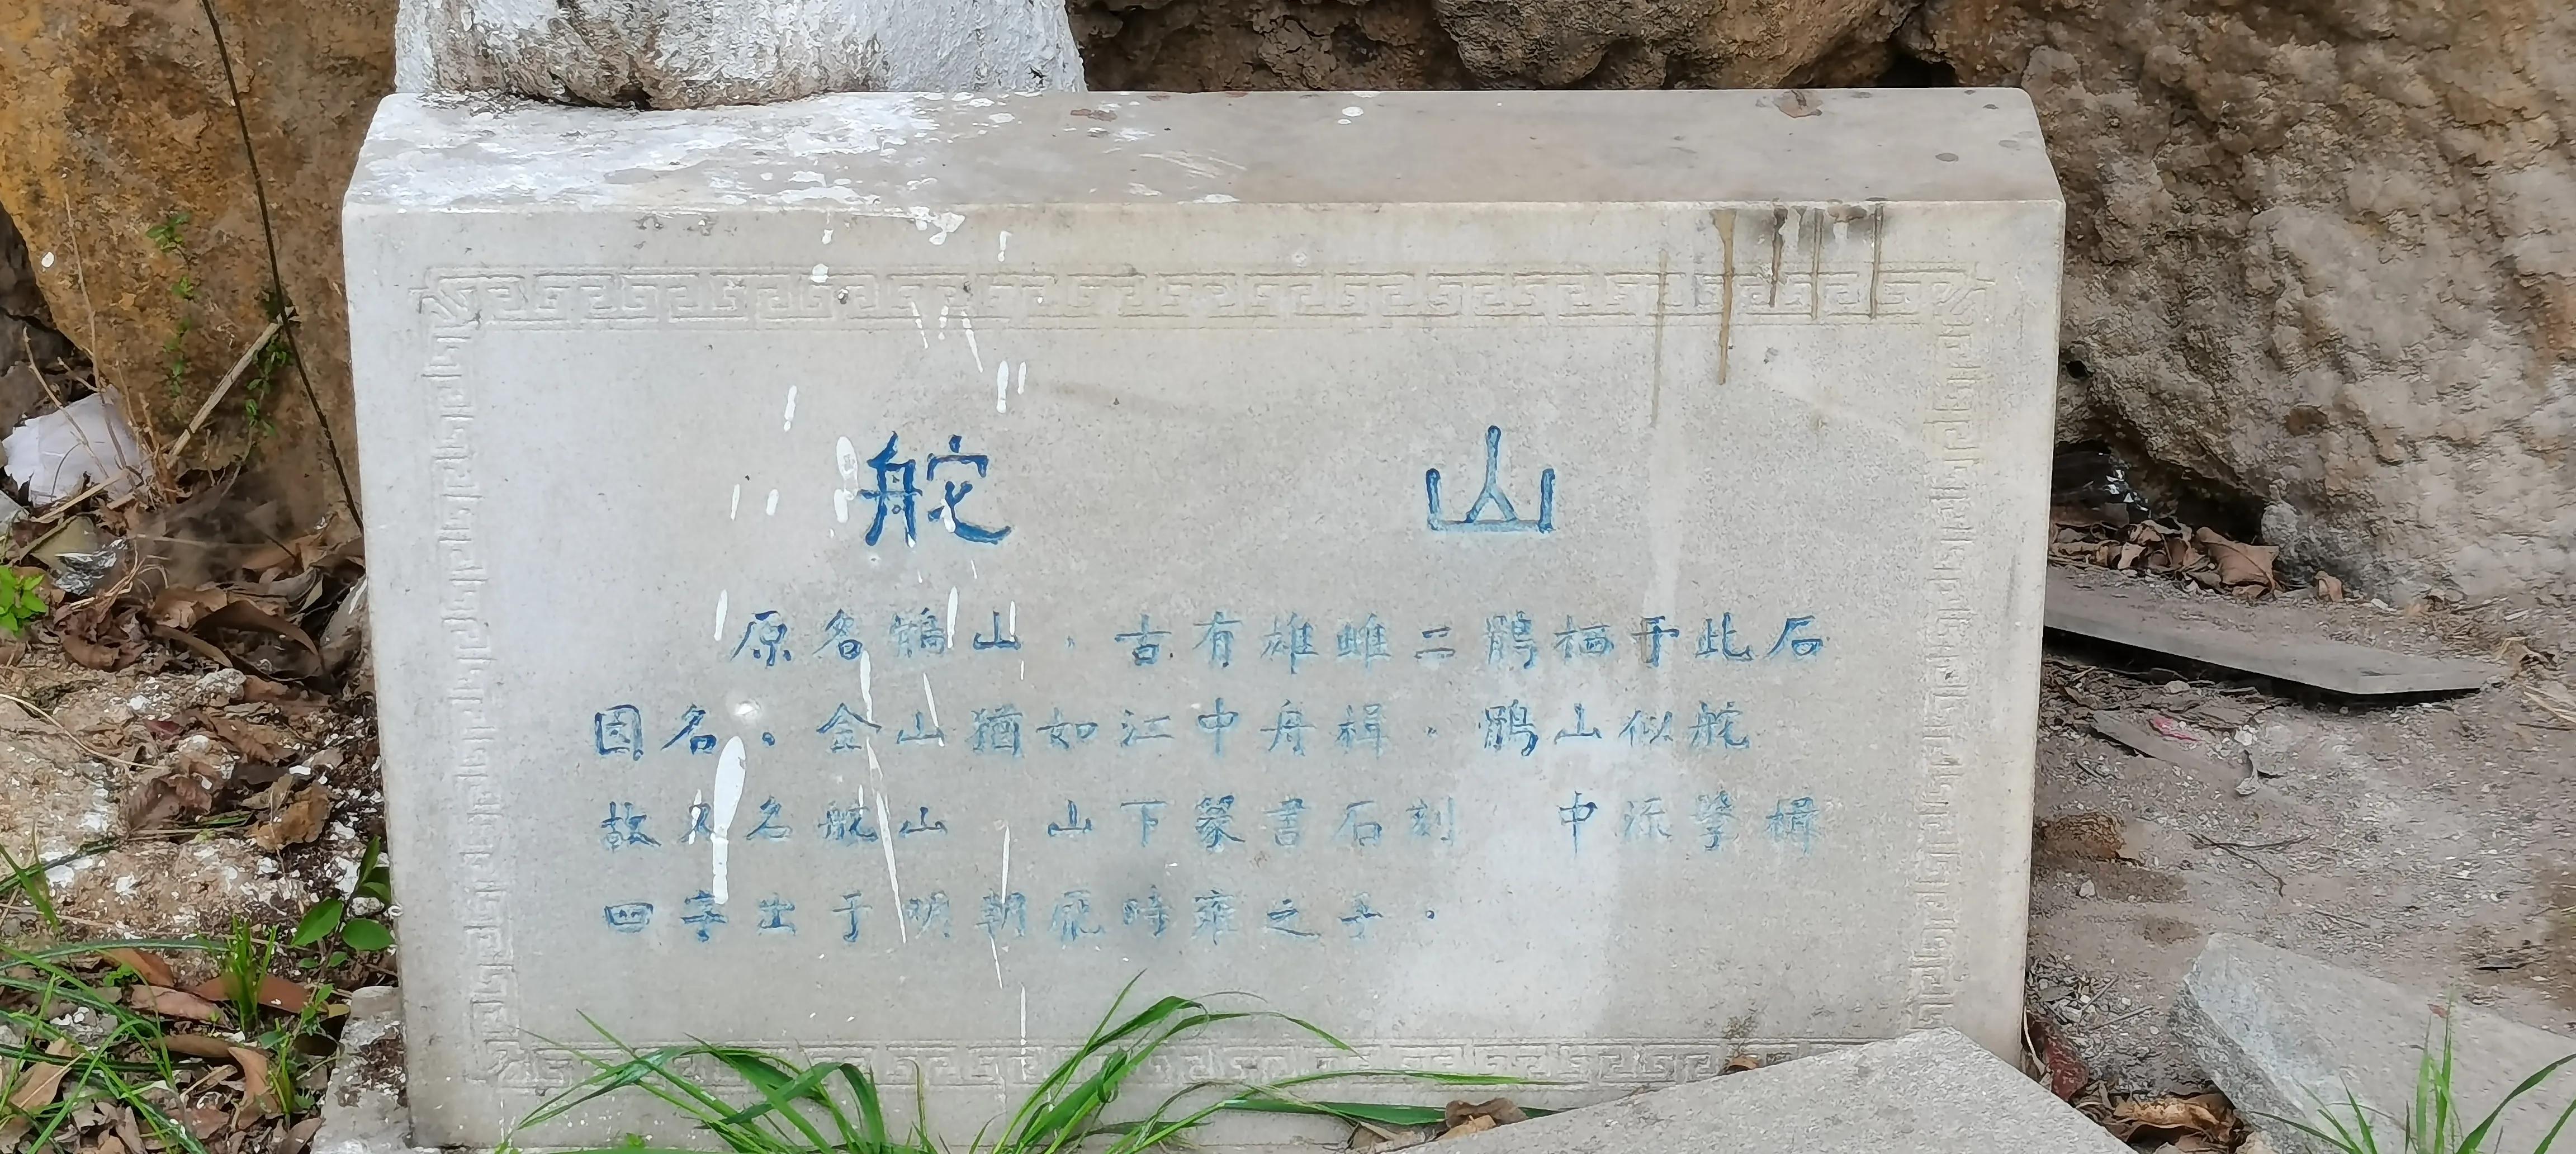 舵山
原名鹘山，古有雄雌二鹘栖于此石
因名。金山猶如江中舟楫，鹘山似舵
故又名舵山 山下篆書石刻 中流擎楫
四字出于明朝 時雍之手。